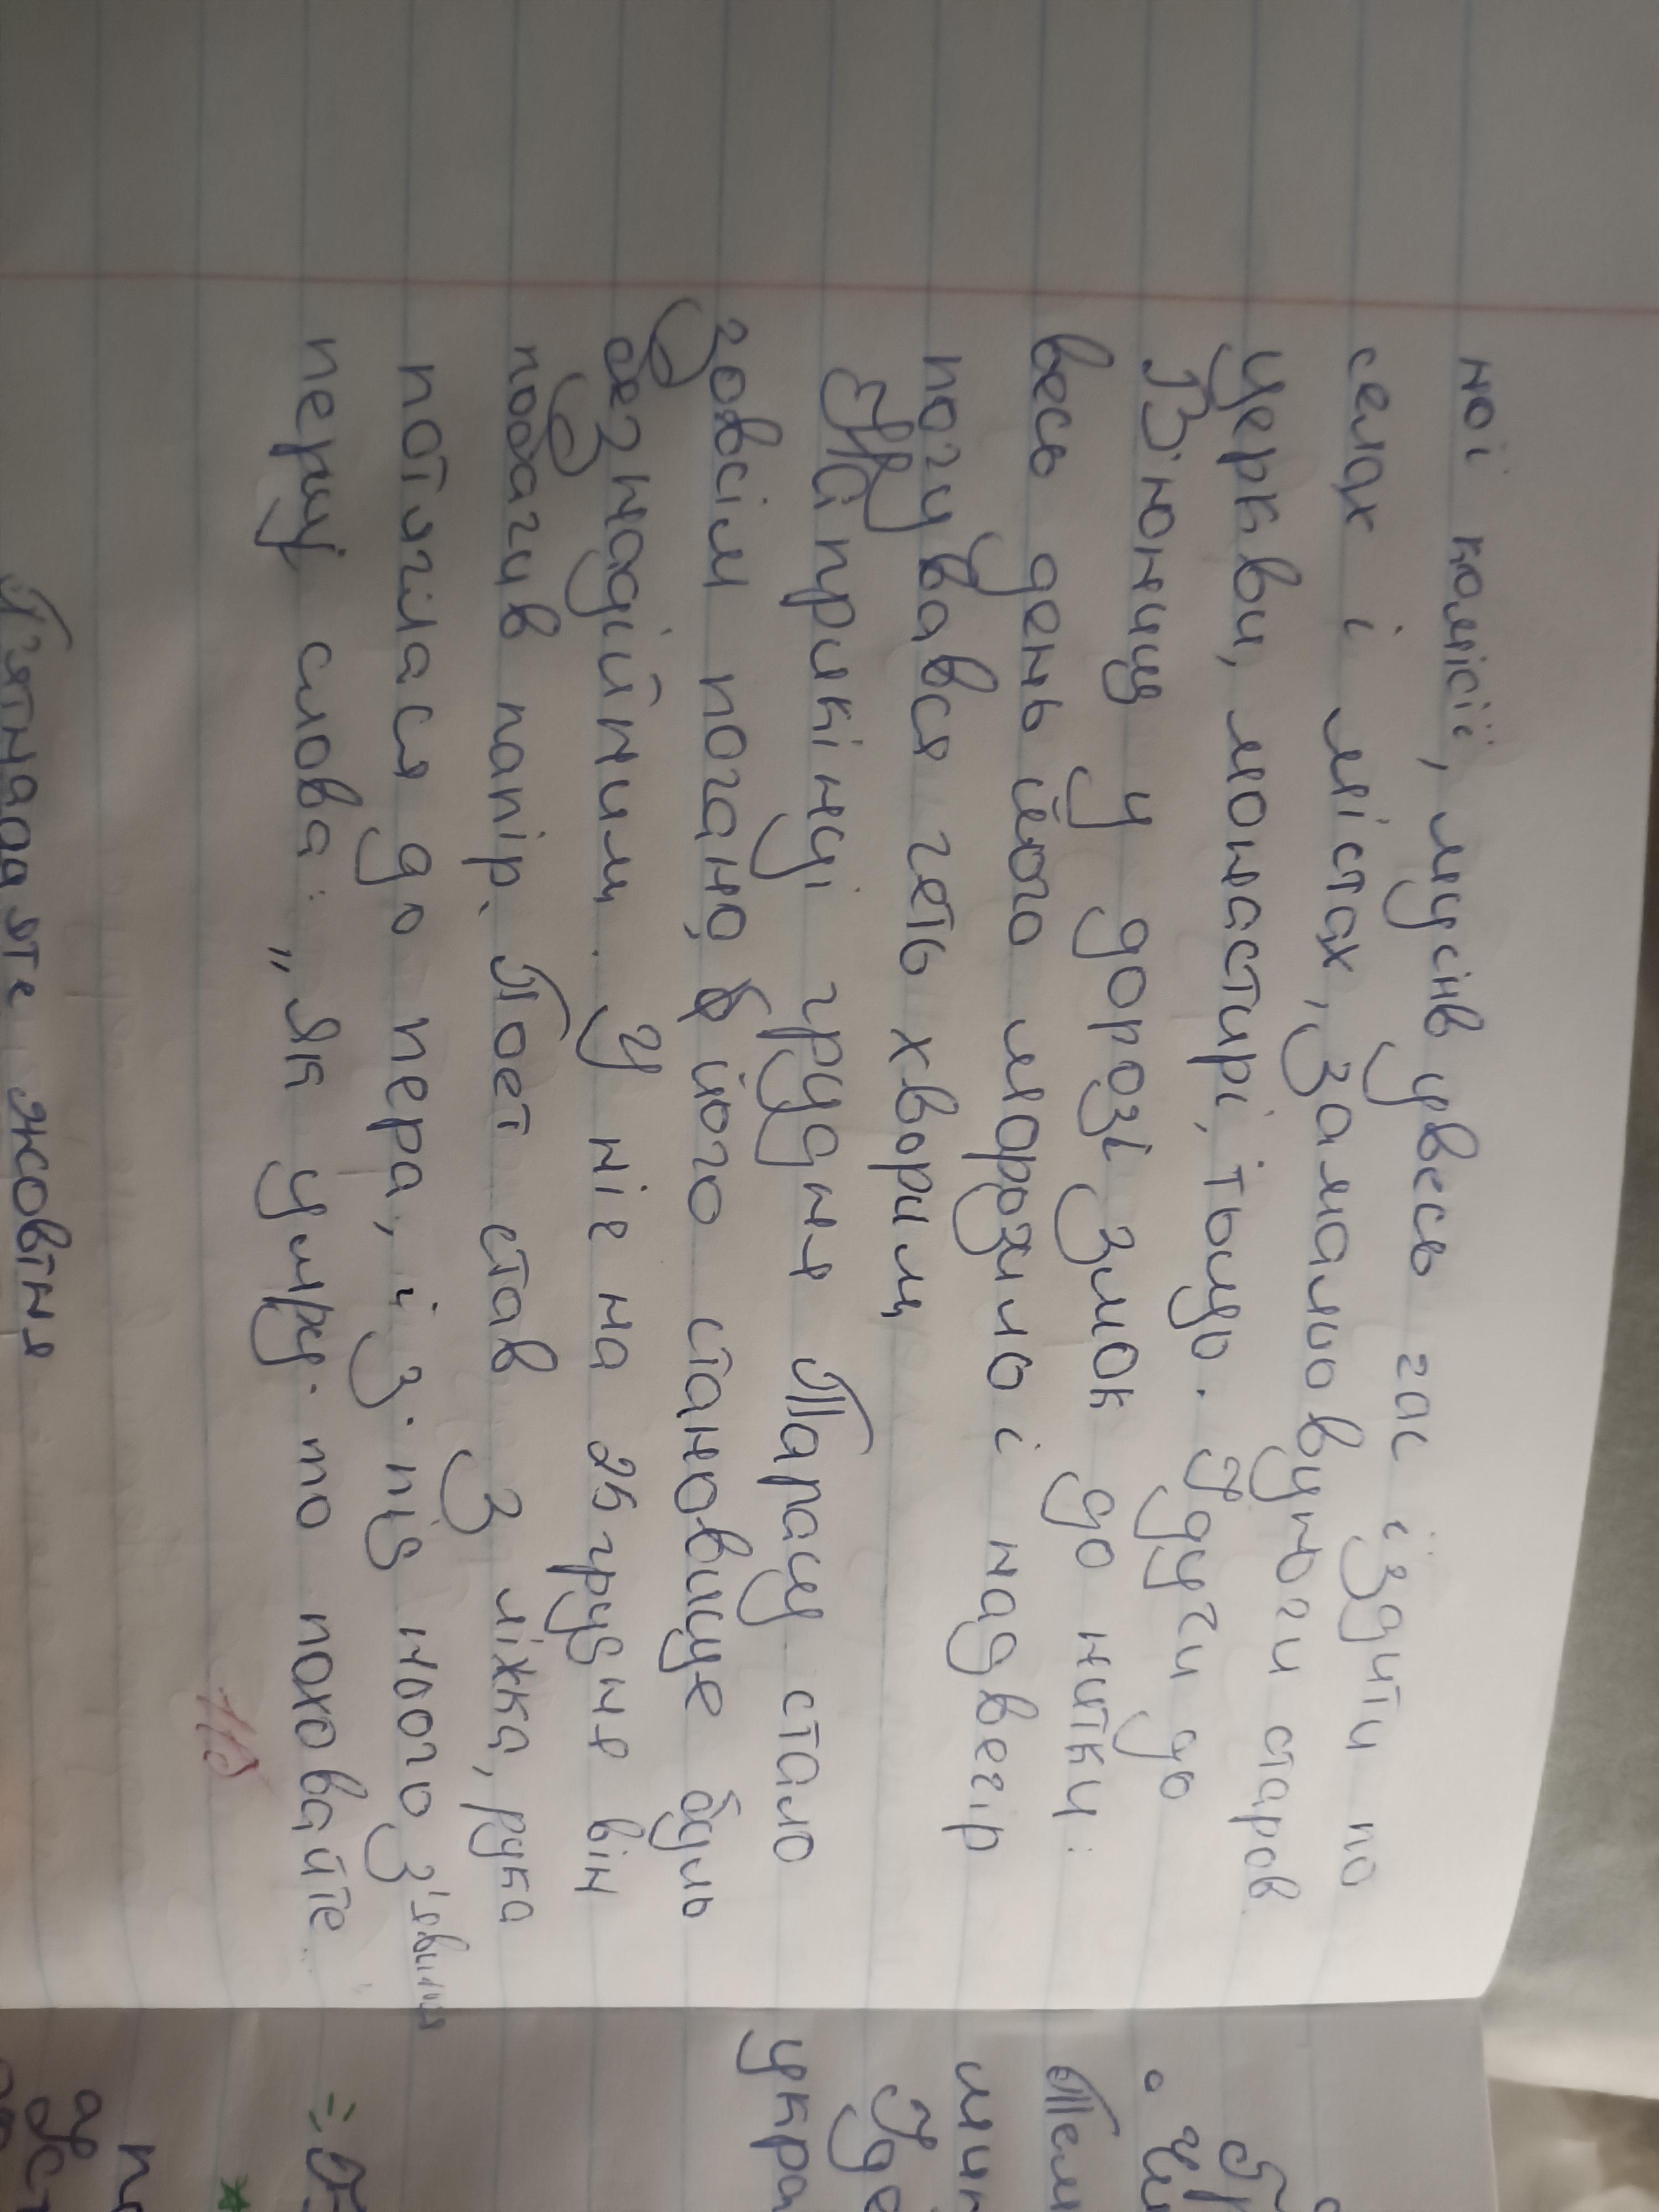 ної комісії, мусив увесь час їздити по
селах і містах, замальовуючи старов.
церкви, монастирі, тощо. Їдучи до
В'юнищ у дорозі змок до нитки:
весь день його морозило і надвечір
почувався геть хворим
Наприкінці грудня Тарасу стало
зовсім погано, й його становище було
безнадійним. У ніч на 25 грудня він
побачив папір. Поет став з ліжка, рука
потяглася до пера, й з-під нього з'явились
перші слова: „Як умру. то поховайте
115
П'ятнадцяте жовтня
Тем
укра